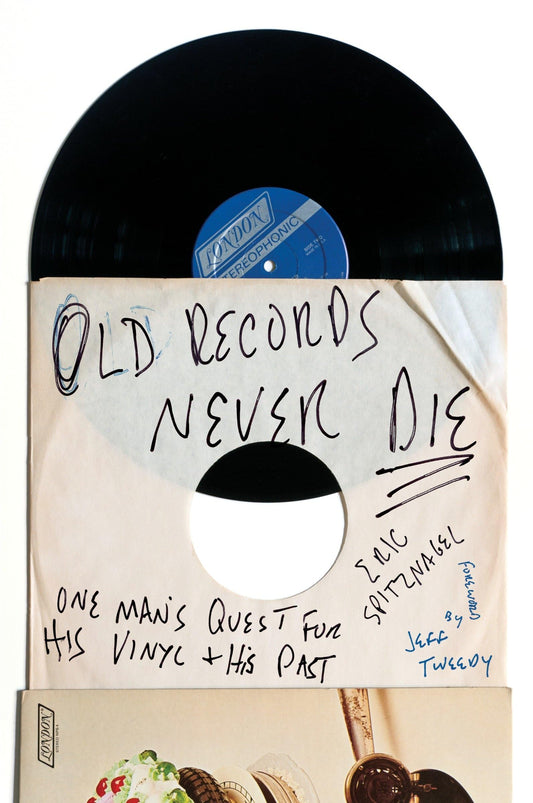 LONDON
STEREOPHONIC
OLD RECORDS
NEVER DIE
ERIC
SPITZNAGEL
ONE MAN'S QUEST FOR
HIS VINYL + HIS PAST
FOREWORD
BY
JEFF
TWEEDY
LONDON